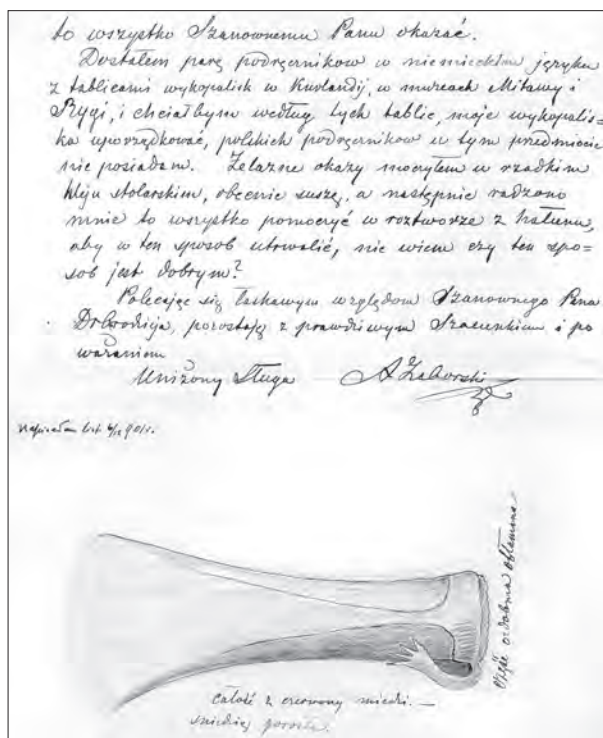 to wszystko Szanownemu Panu okazać.
Dostałem parę podręczników w niemieckim języku
z tablicami wykopalisk w Kurlandij, w muzeach Mitawy i
Rygi, i chciałbym według tych tablic, moje wykopalis=
ka uporządkować, polskich podręczników w tym przedmiocie
nie posiadam. Żelazne okazy moczyłem w rzadkim
kleju stolarskim, obecnie suszę, a następnie radzono
mnie to wszystko pomoczyć w roztworze z hałunu,
aby w ten sposob utrwalić, nie wiem czy ten spo=
sob jest dobrym?
Polecając się łaskawym względom Szanownego Pana
Dobrodzieja, pozostaję z prawdziwym Szacunkiem i po
ważaniem
Uniżony Sługa AZaborski
Napisałem list
Część ozdobna obłamana
Całość z czerwonej miedzi. —
śniedzią porosła.